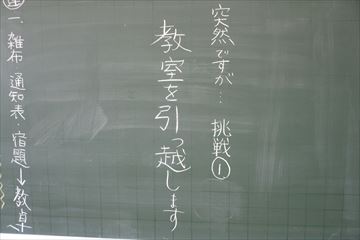 突然ですが… 挑戦①
教室を引っ越します
一、雑布・通知表・宿題→教卓